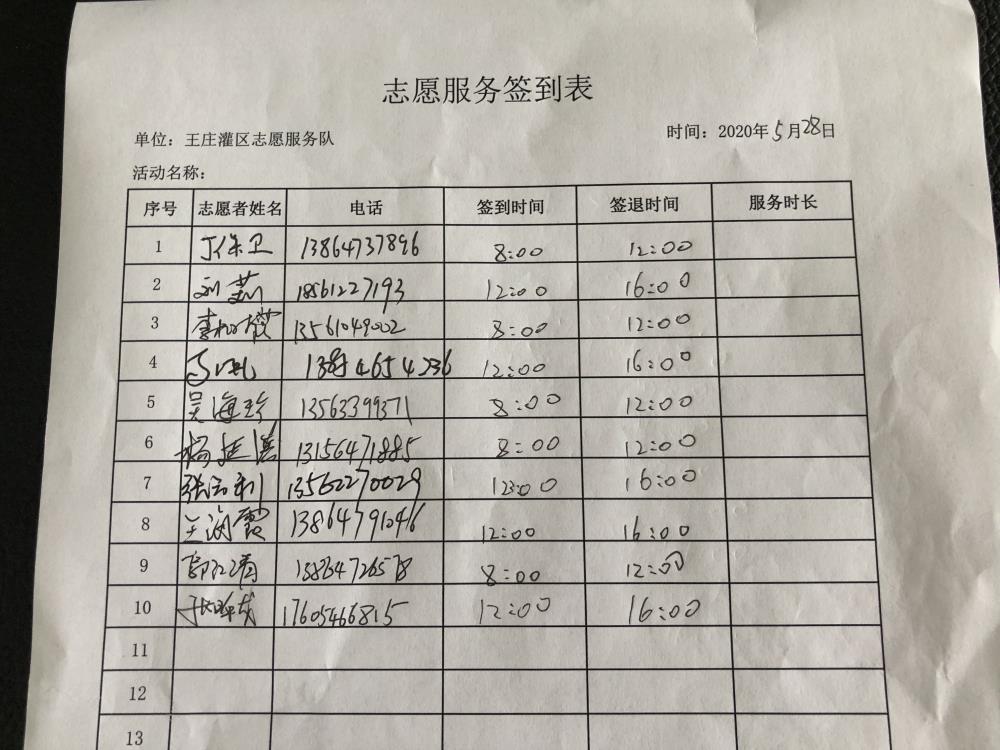 志愿服务签到表
单位：王庄灌区志愿服务队 时间：2020年5月28日
活动名称：
序号 志愿者姓名 电话 签到时间 签退时间 服务时长
1 丁保卫 13864737896 8:00 12:00
2 刘莉 18561227193 12:00 16:00
3 13561049002 8:00 12:00
4 12:00 16:00
5 吴海珍 13563399371 8:00 12:00
6 杨廷 13156471885 8:00 12:00
7 13562270029 16:00
8 王润霞 13864791046 12:00 16:00
9 8:00 12:00
10 17605466815 12:00 16:00
11
12
13